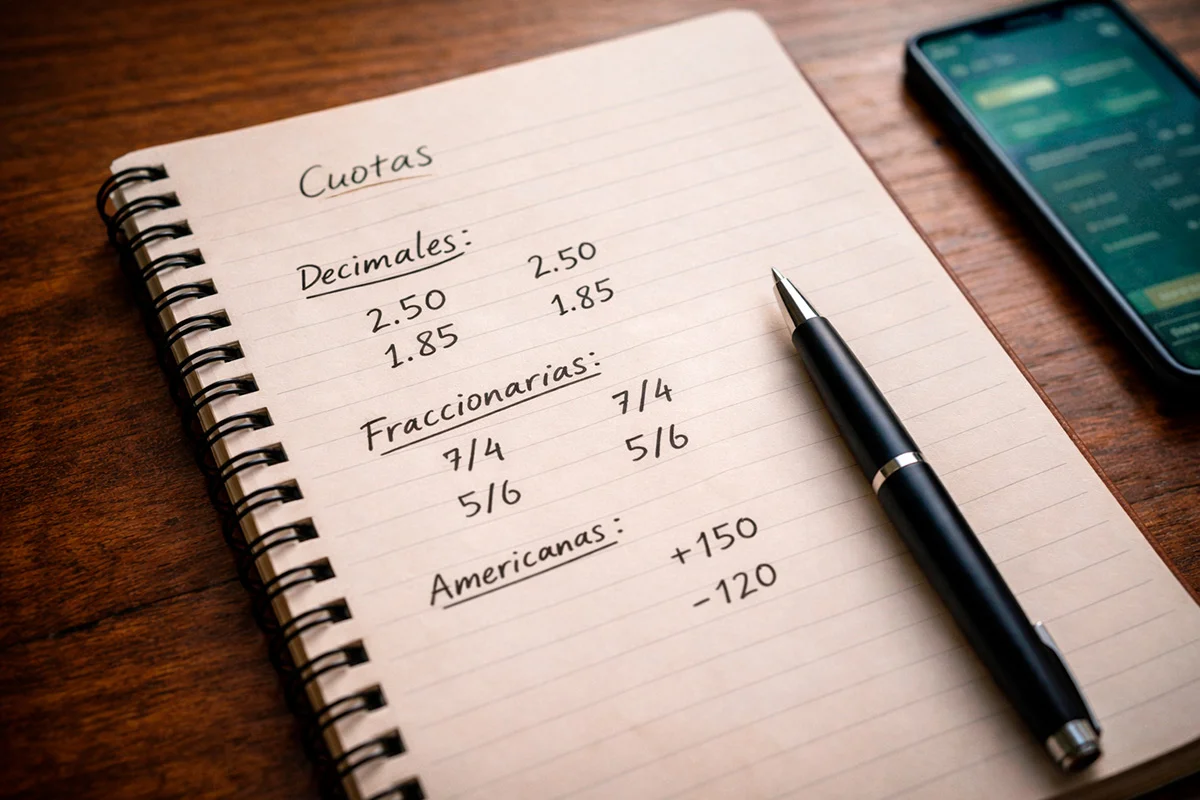 Cuotas
Decimales:
2.50 2.50
1.85 1.85
Fraccionarias:
7/4 7/4
5/6 5/6
Americanas:
+150
-120